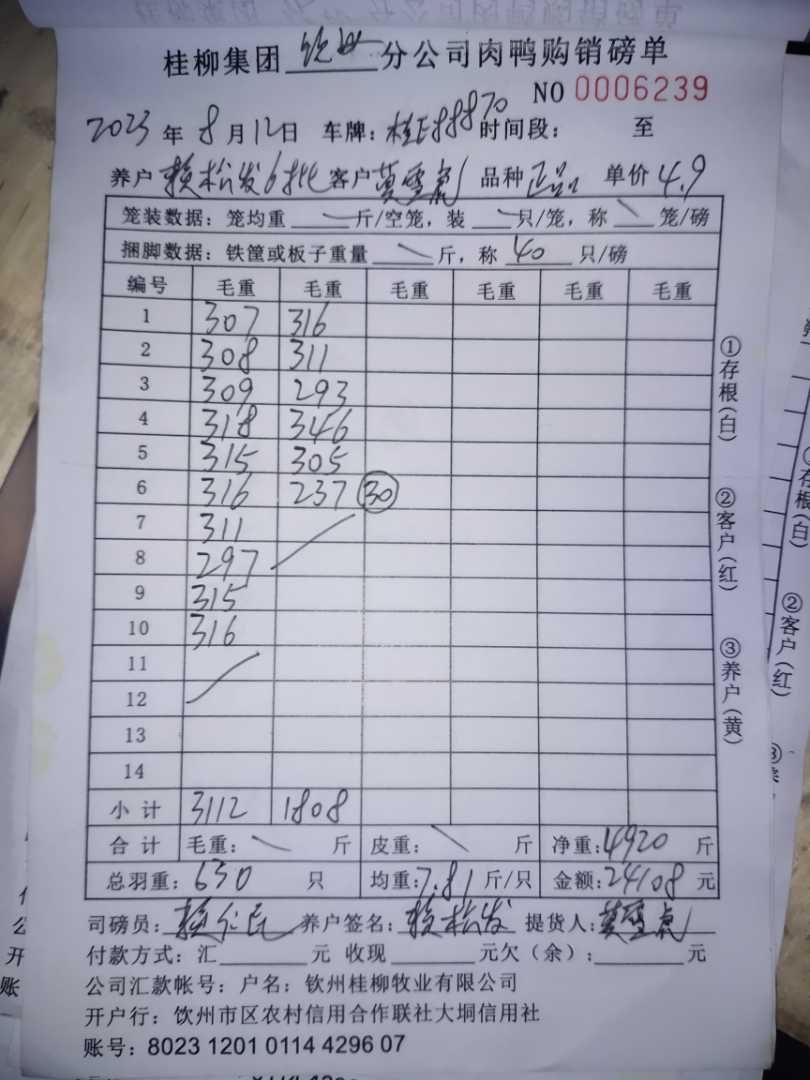 桂柳集团 钦州 分公司肉鸭购销磅单
NO 0006239
2023 年 8 月 12 日 车牌: 桂E88870 时间段: 至
养户 赖松发6批 客户 莫雪亮 品种 正品 单价 4.9
笼装数据: 笼均重 斤/空笼, 装 只/笼, 称 笼/磅
捆脚数据: 铁筐或板子重量 斤, 称 40 只/磅
编号 毛重 毛重 毛重 毛重 毛重 毛重
1 307 316
2 308 311
3 309 293
4 318 346
5 315 305
6 316 237 30
7 311
8 297
9 315
10 316
11
12
13
14
小计 3112 1808
合计 毛重: 斤 皮重: 斤 净重: 4920 斤
总羽重: 630 只 均重: 7.81 斤/只 金额: 24108 元
司磅员: 养户签名: 赖松发 提货人: 莫雪亮
付款方式: 汇 元 收现 元欠(余): 元
公司汇款帐号: 户名: 钦州桂柳牧业有限公司
开户行: 饮州市区农村信用合作联社大垌信用社
账号: 8023 1201 0114 4296 07
①存根(白)
②客户(红)
③养户(黄)
①存根(白)
②客户(红)